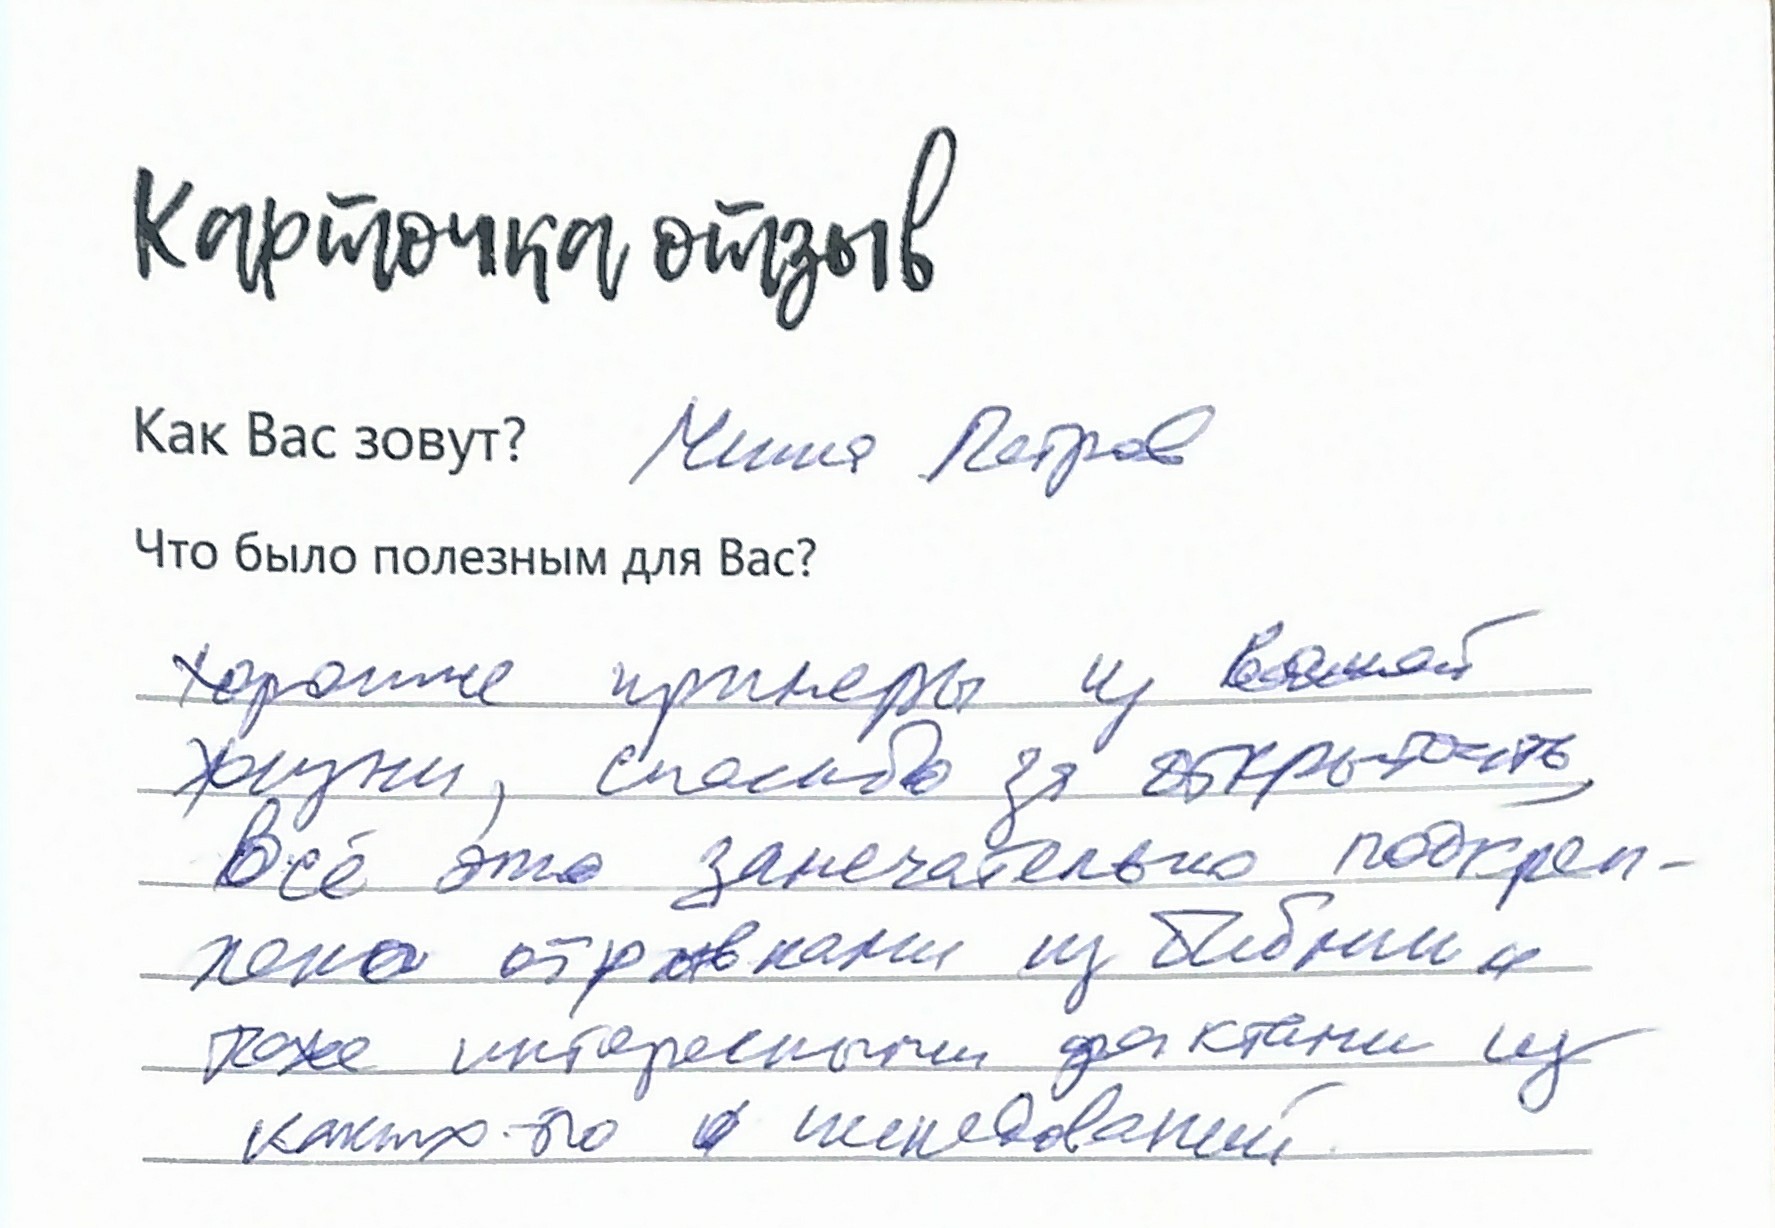 Карточка отзыв
Как Вас зовут? Миша Петров
Что было полезным для Вас?
Хорошие примеры из вашей
жизни, спасибо за открытость,
Всё это замечательно подкреп-
лено отрывками из Библии и
тоже интересными фактами из
каких-то исследований.